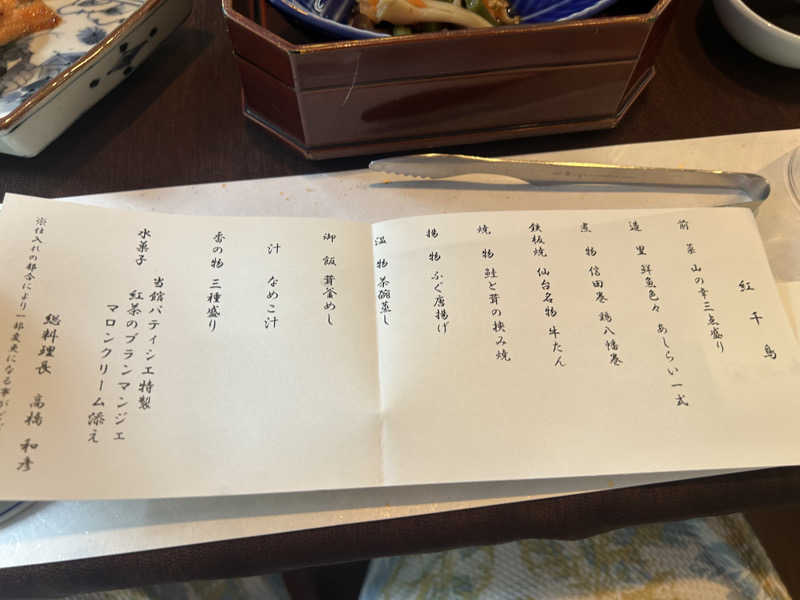 紅千鳥
前菜 山の幸三点盛り
造里 鮮魚色々 あしらい一式
煮物 信田巻 鶏八幡巻
鉄板焼 仙台名物 牛たん
焼物 鮭と茸の挟み焼
揚物 ふぐ唐揚げ
温物 茶碗蒸し
御飯 茸釜めし
汁 なめこ汁
香の物 三種盛り
水菓子 当館パティシエ特製
紅茶のブランマンジェ
マロンクリーム添え
総料理長 高橋 和彦
※仕入れの都合により一部変更になる事が